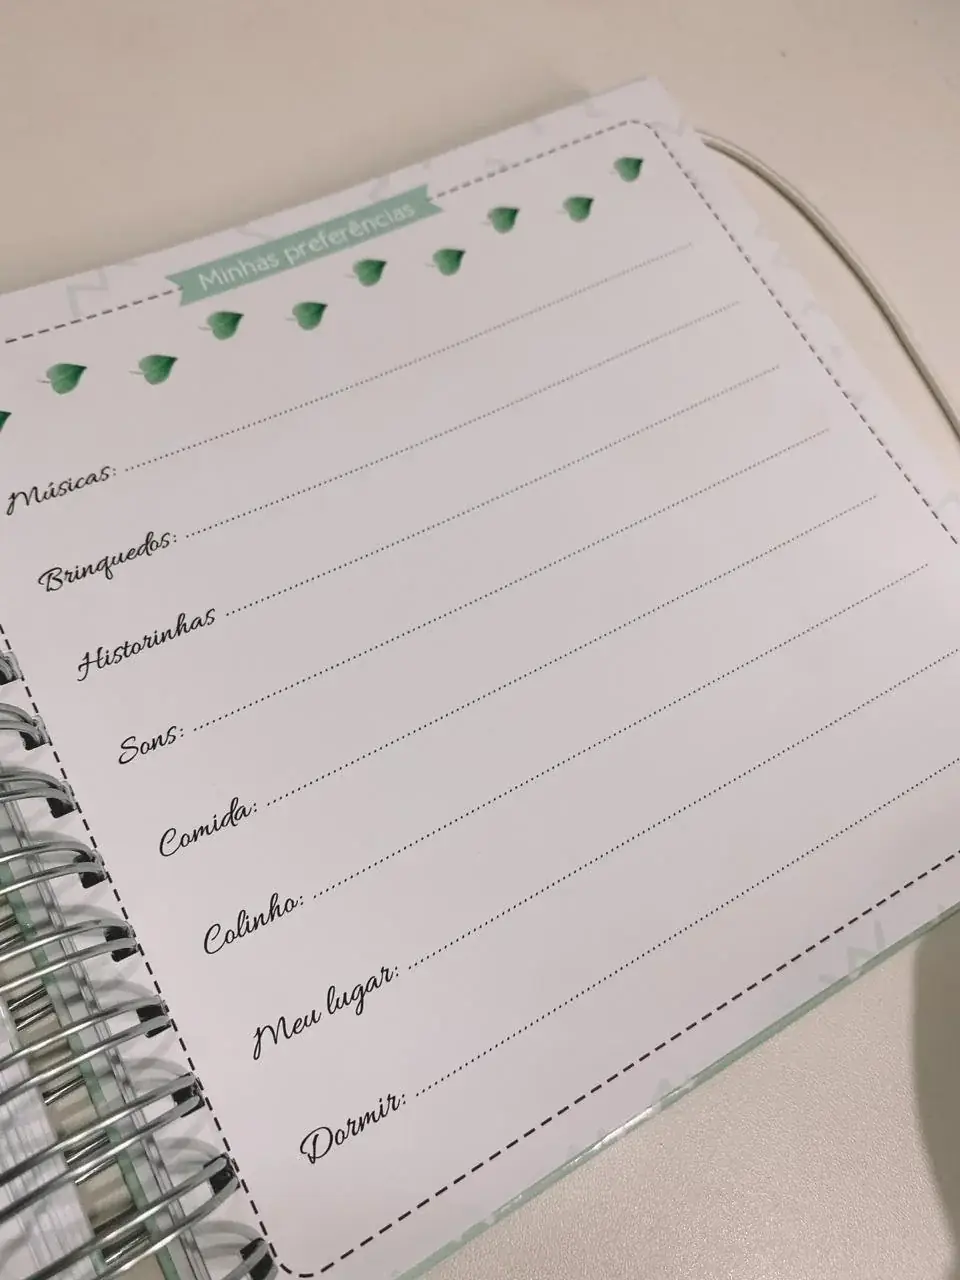 Minhas preferências
Músicas:
Brinquedos:
Historinhas
Sons:
Comida:
Colinho:
Meu lugar:
Dormir: